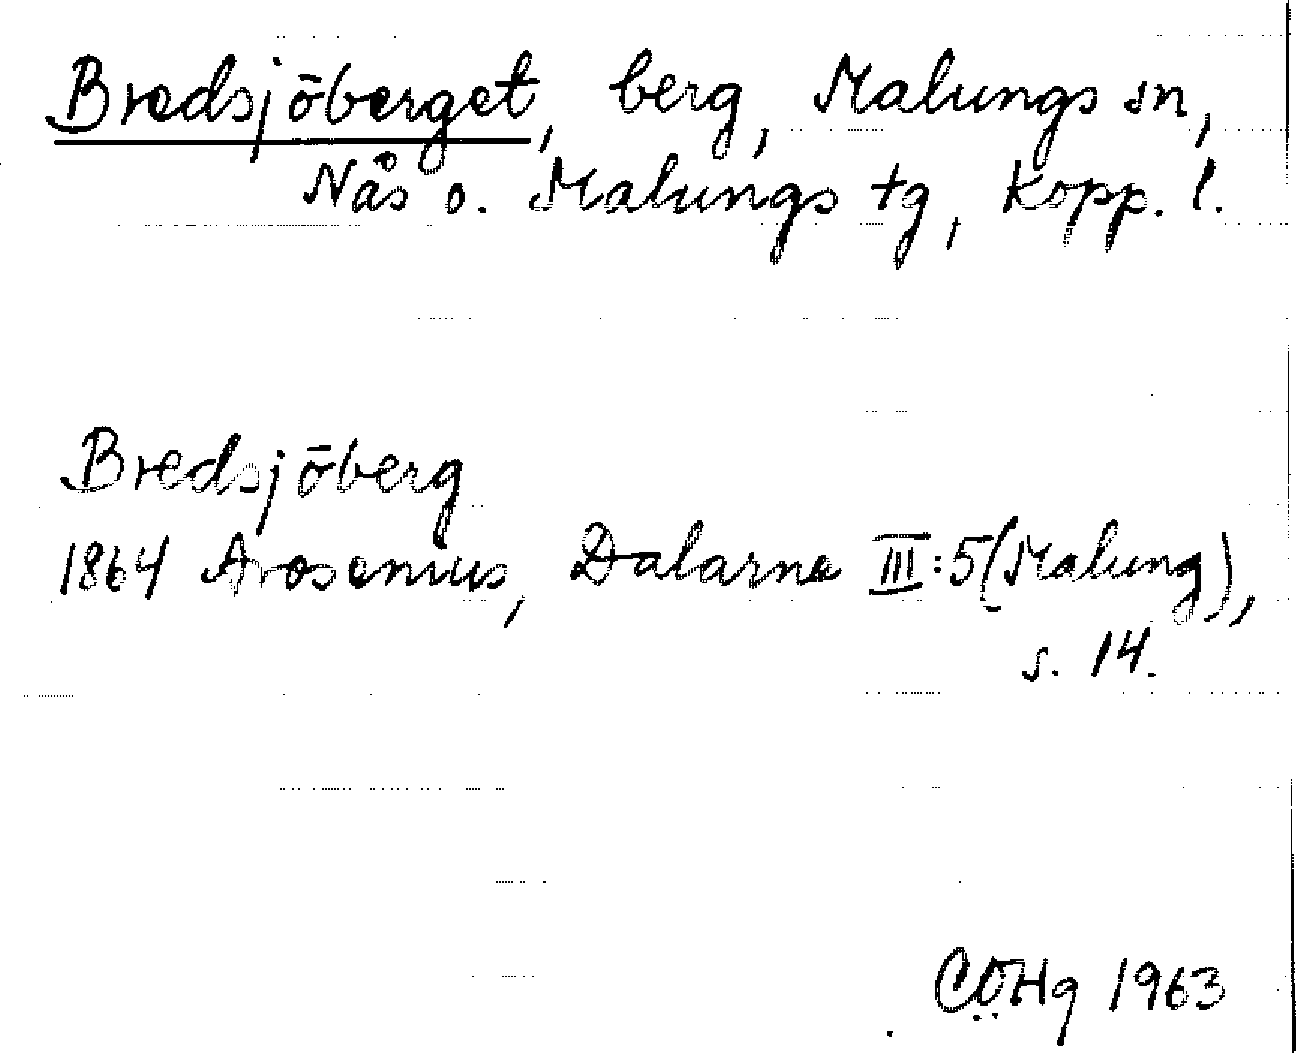 Bredsjöberget, berg, Malungs sn,
Nås o. Malungs tg, Kopp. l.
Bredsjöberg
1864 Arosenius, Dalarna III:5(Malung),
s. 14.
CÖHg 1963